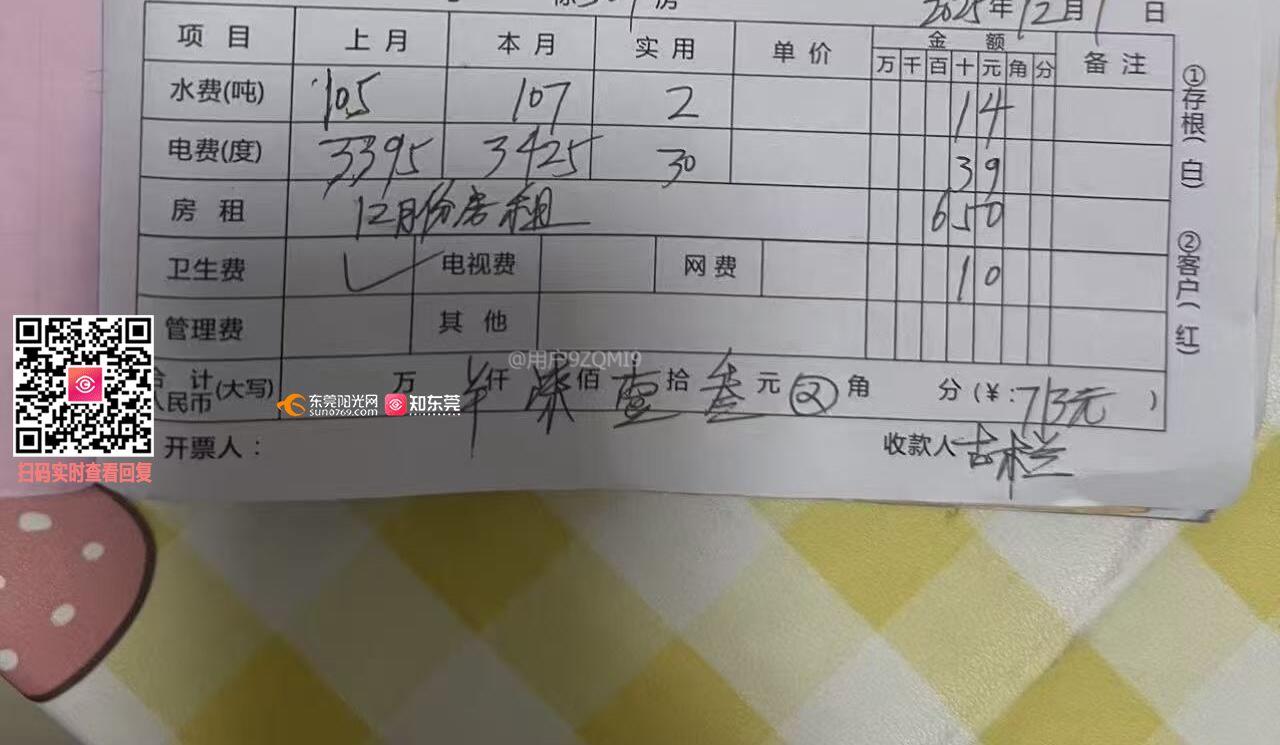 房
2025年12月1日
项目 上月 本月 实用 单价 金额 备注
万 千 百 十 元 角 分
水费(吨) 105 107 2 14
电费(度) 3395 3425 30 39
房租 12月份房租 650
卫生费 ✓ 电视费 网费 10
管理费 其他
@用户9ZQMI9
合计人民币(大写) 万 仟 柒佰 壹拾 叁元 角 分(¥:713元)
开票人: 收款人
①存根(白) ②客户(红)
东莞阳光网 知东莞
SUN0769.COM
扫码实时查看回复